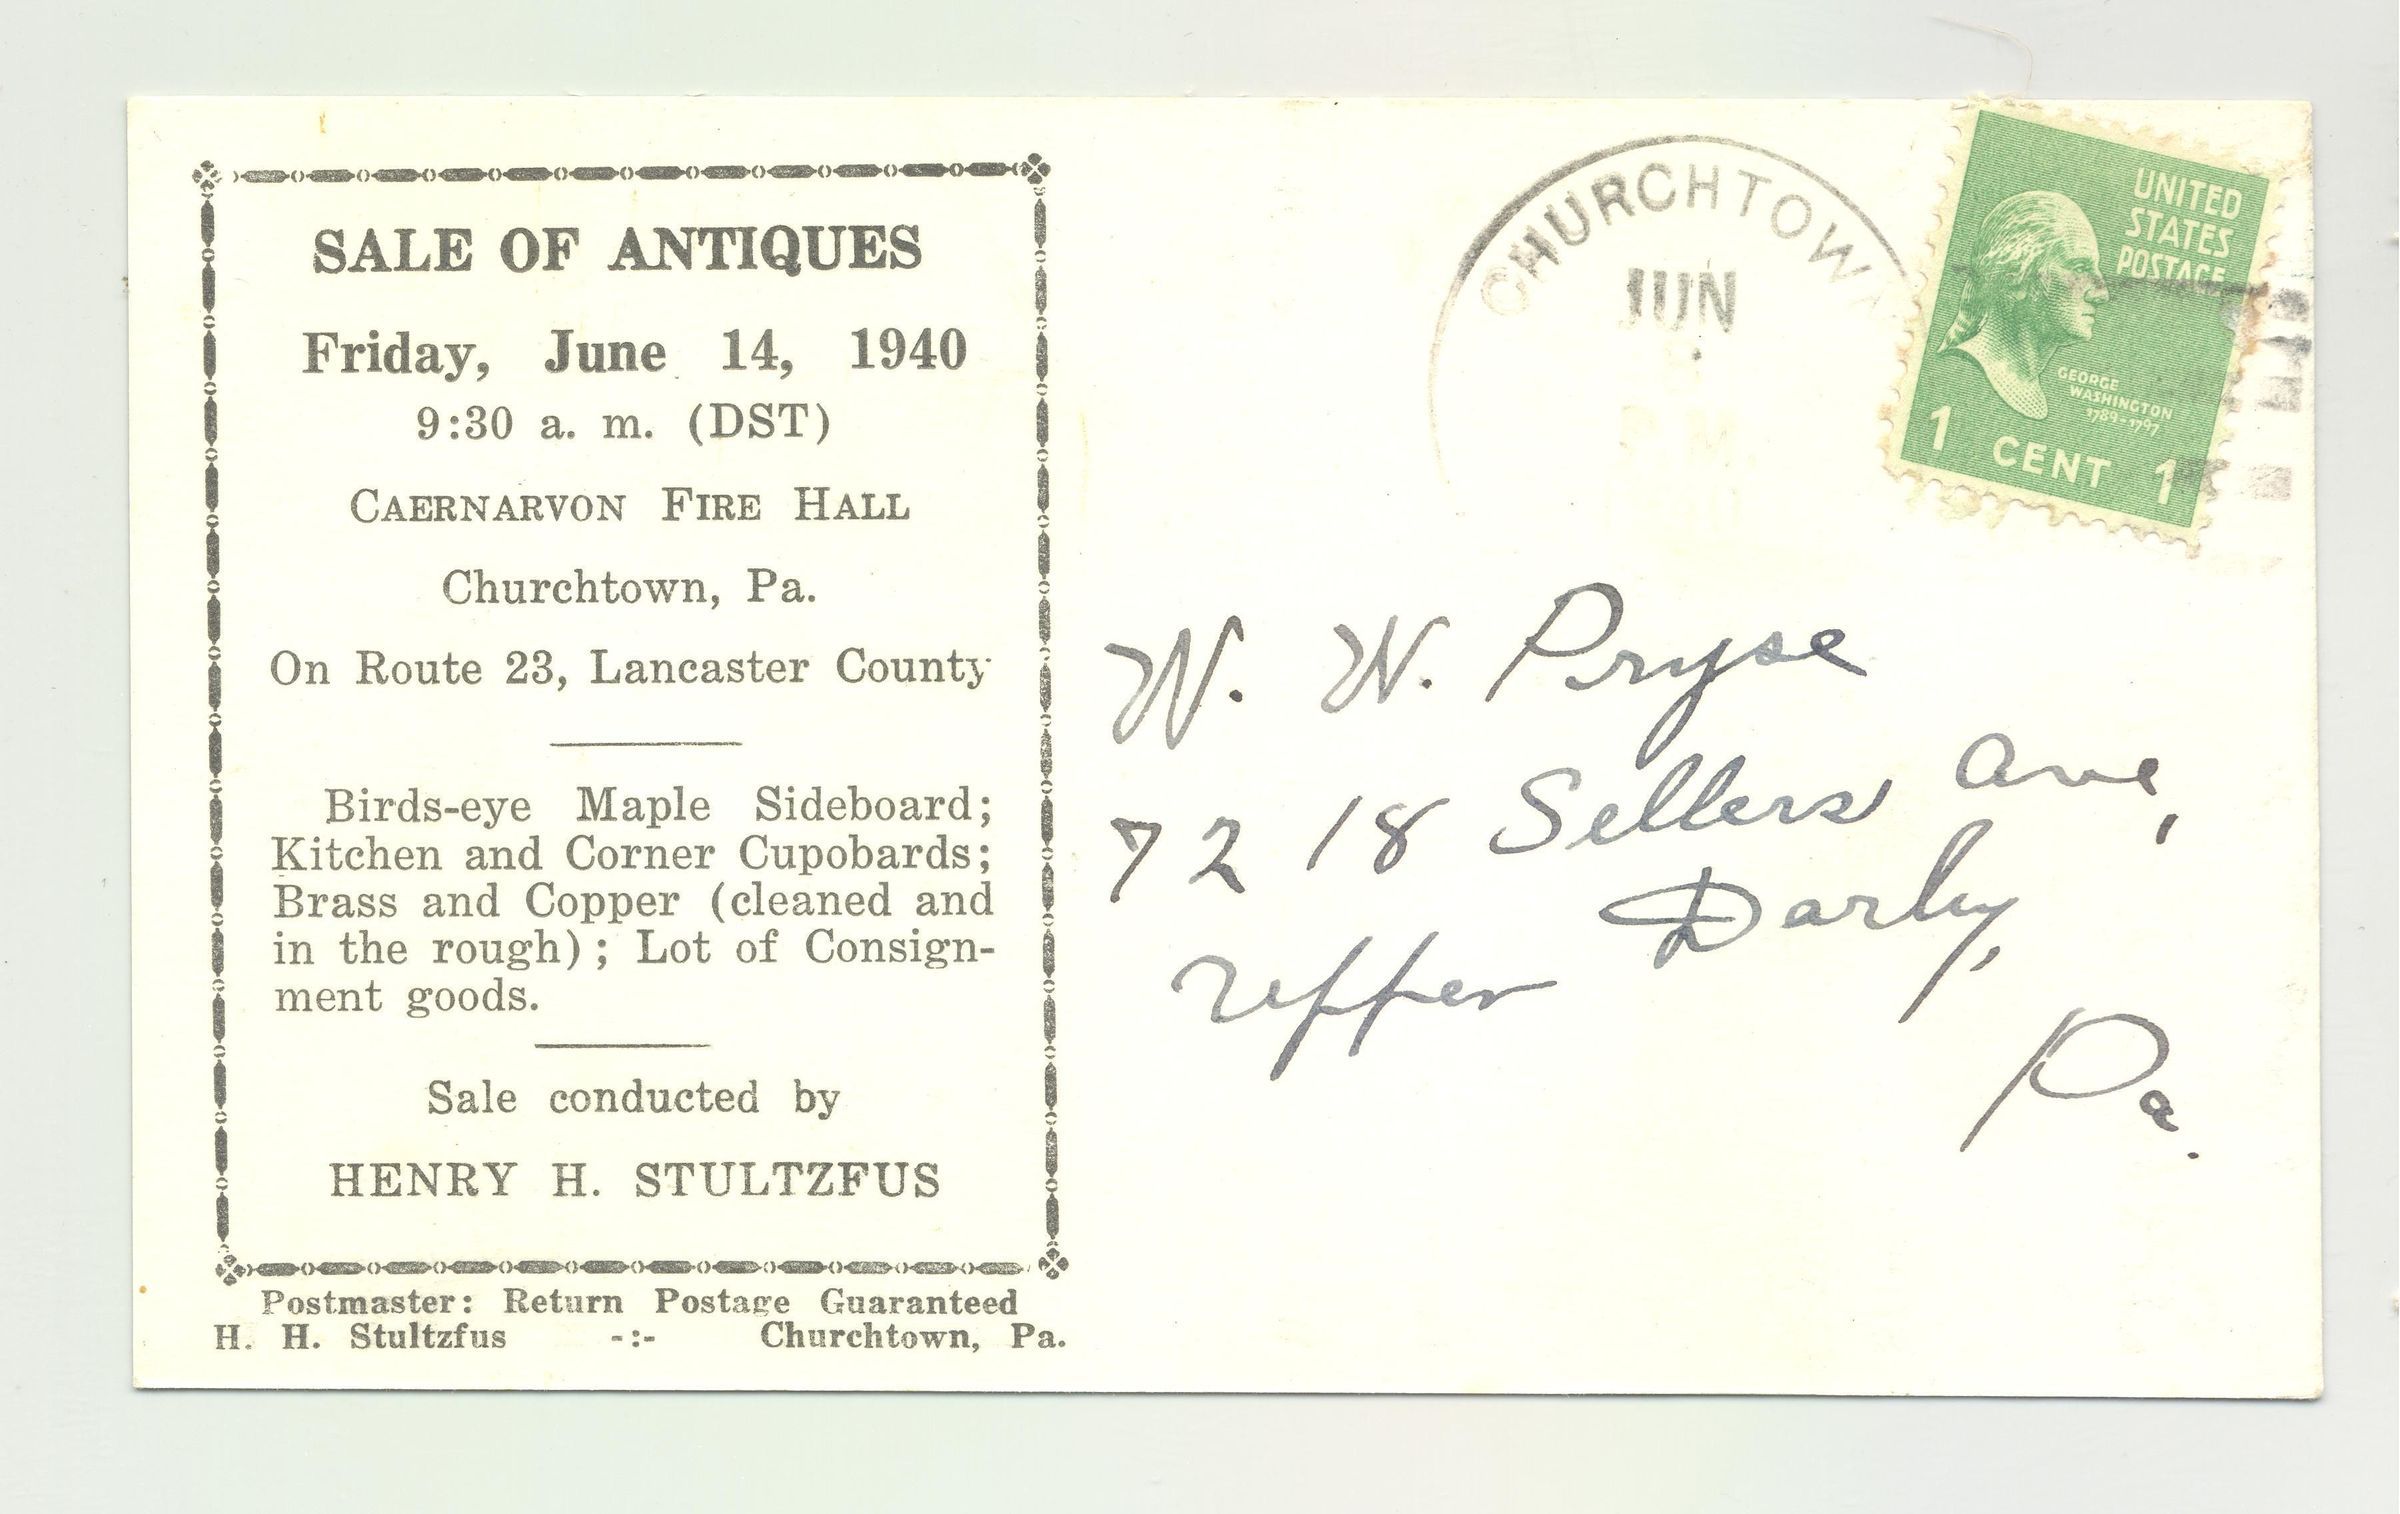 SALE OF ANTIQUES
Friday, June 14, 1940
9:30 a. m. (DST)
CAERNARVON FIRE HALL
Churchtown, Pa.
On Route 23, Lancaster County
Birds-eye Maple Sideboard;
Kitchen and Corner Cupobards;
Brass and Copper (cleaned and
in the rough); Lot of Consign-
ment goods.
Sale conducted by
HENRY H. STULTZFUS
Postmaster: Return Postage Guaranteed
H. H. Stultzfus -:- Churchtown, Pa.
CHURCHTOWN
JUN
UNITED
STATES
POSTAGE
GEORGE
WASHINGTON
1789-1797
1 CENT 1
W. W. Pryse
7218 Sellers Ave,
Upper Darby,
Pa.